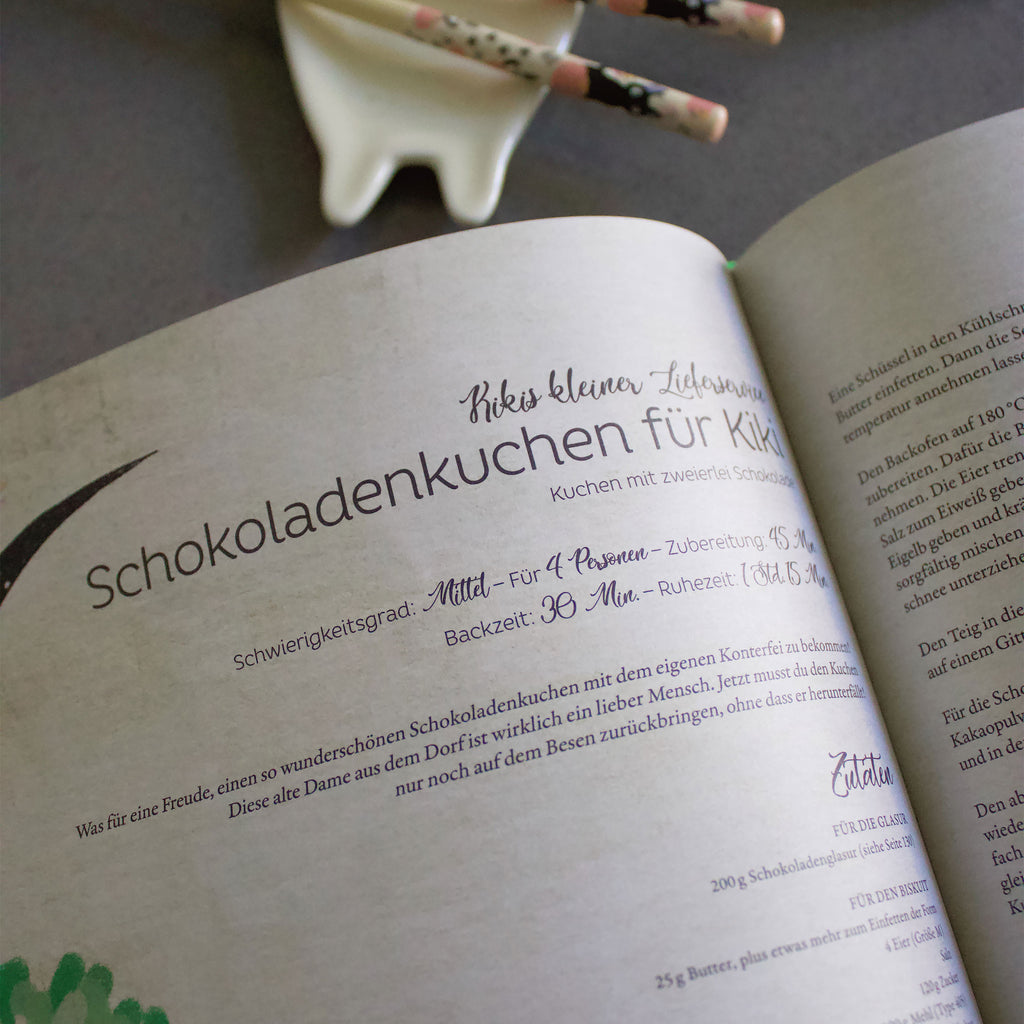 Kikis kleiner Lieferservice
Schokoladenkuchen für Kiki
Kuchen mit zweierlei Schokolade
Schwierigkeitsgrad: Mittel – Für 4 Personen – Zubereitung: 45 Min.
Backzeit: 30 Min. – Ruhezeit: 1 Std. 15 Min.
Was für eine Freude, einen so wunderschönen Schokoladenkuchen mit dem eigenen Konterfei zu bekommen!
Diese alte Dame aus dem Dorf ist wirklich ein lieber Mensch. Jetzt musst du den Kuchen
nur noch auf dem Besen zurückbringen, ohne dass er herunterfällt!
Zutaten
FÜR DIE GLASUR
200 g Schokoladenglasur (siehe Seite 130)
FÜR DEN BISKUIT
25 g Butter, plus etwas mehr zum Einfetten der Form
4 Eier (Größe M)
Salz
120 g Zucker
Mehl (Type 405)
Eine Schüssel in den Kühlschr
Butter einfetten. Dann die S
temperatur annehmen lasse
Den Backofen auf 180 °C
zubereiten. Dafür die B
nehmen. Die Eier tren
Salz zum Eiweiß gebe
Eigelb geben und krä
sorgfältig mischen.
schnee unterziehe
Den Teig in die
auf einem Gitt
Für die Scho
Kakaopulv
und in de
Den ab
wiede
fach
glei
K